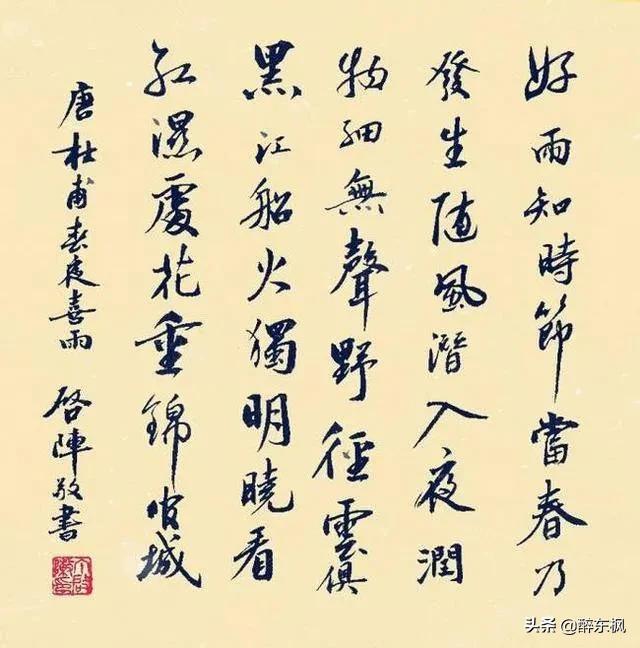 好雨知時節當春乃
發生随風潛入夜潤
物細無聲野徑雲俱
黑江船火獨明曉看
紅濕處花重錦官城
唐杜甫春夜喜雨 啓陣敬書
头条 @醉东枫